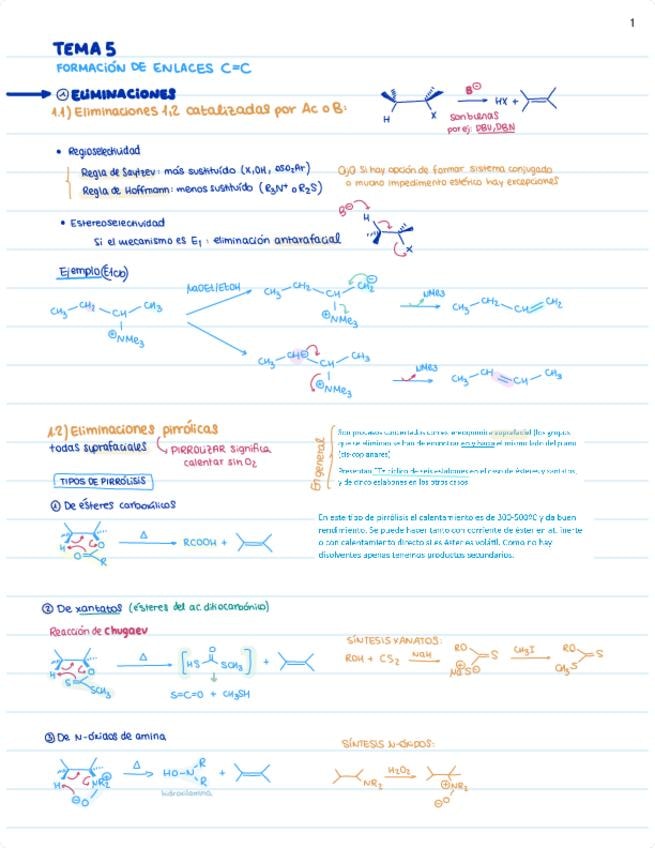 1
TEMA 5
FORMACIÓN DE ENLACES C=C
① ELIMINACIONES
1.1) Eliminaciones 1,2 catalizadas por Ac o B:
B⊖
HX +
H
X
son buenas
por ej: DBU, DBN
• Regioselectividad
Regla de Saytzev: más sustituído (X, OH, OSO₂Ar)
Regla de Hoffmann: menos sustituído (R₃N⁺ o R₂S)
OJO Si hay opción de formar sistema conjugado
o mucho impedimento estérico hay excepciones
• Estereoselectividad
Si el mecanismo es E₁ : eliminación antarafacial
B⊖
H
X
Ejemplo (E1cb)
NaOEt/EtOH
CH₃ CH₂ CH CH₂⊖
⊕NMe₃
NMe₃
CH₃ CH₂ CH CH₂
CH₃ CH₂ CH CH₃
⊕NMe₃
CH₃ CH⊖ CH CH₃
⊕NMe₃
NMe₃
CH₃ CH CH CH₃
1.2) Eliminaciones pirrólicas
todas suprafaciales
PIRROLIZAR significa
calentar sin O₂
En general
Son procesos concertados con estereoquímica suprafacial (los grupos
que se eliminan se han de encontrar en y hacia el mismo lado del plano
(cis-coplanares)
Presentan ET cíclico de seis eslabones en el caso de ésteres y xantatos,
y de cinco eslabones en los otros casos
TIPOS DE PIRRÓLISIS
① De ésteres carboxílicos
H O
O R
Δ
RCOOH +
En este tipo de pirrólisis el calentamiento es de 300-500ºC y da buen
rendimiento. Se puede hacer tanto con corriente de éster en at. inerte
o con calentamiento directo si es éster es volátil. Como no hay
disolventes apenas tenemos productos secundarios.
② De xantatos (ésteres del ac. ditiocarbónico)
Reacción de Chugaev
H O
S SCH₃
Δ
[HS O SCH₃] +
S=C=O + CH₃SH
SÍNTESIS XANATOS:
ROH + CS₂ NaH RO S Na⊕S⊖ CH₃I RO S CH₃S
③ De N-óxidos de amina
H NR₂
⊖O
Δ
HO-N R R +
hidroxilamina
SÍNTESIS N-ÓXIDOS:
NR₂ H₂O₂ ⊕NR₂
⊖O